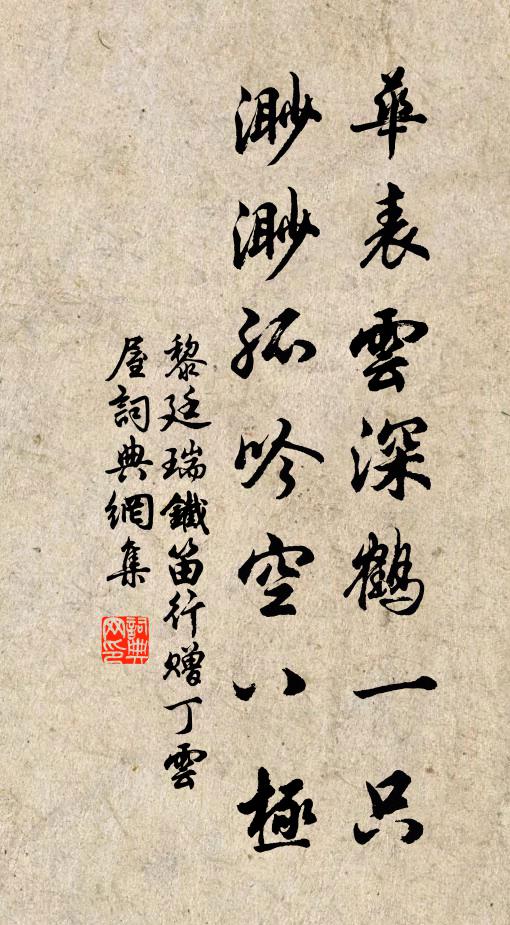 華表雲深鶴一只
渺渺孤吟空八極
黎廷瑞鐵笛行贈丁雲
屋詞典網集
詞典
網印